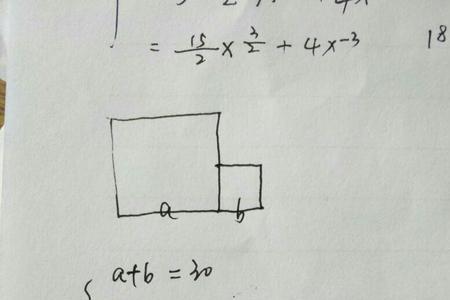 = 15/2 x 3/2 + 4x-3
18
a
b
a+b = 30